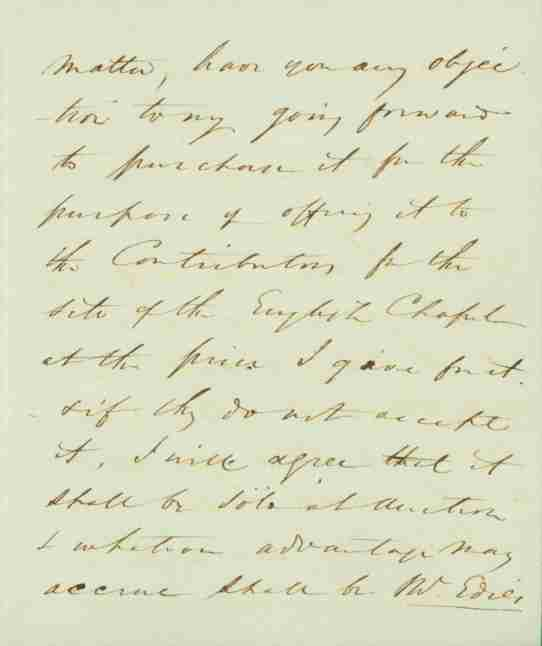 matter, have you any objec-
-tion to my going forward
to purchase it for the
purpose of offering it to
the Contributors for the
site of the English Chapel
at the price I gave for it.
& if they do not accept
it, I will agree that it
shall be sold at Auction
& whatever advantage may
accrue shall be Mr. Edie's